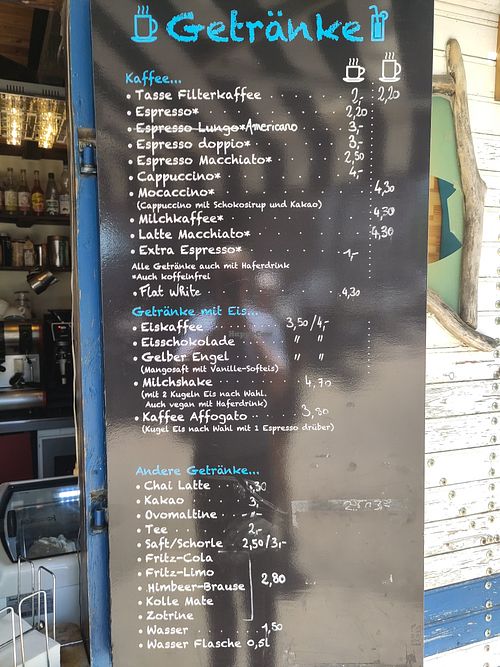 Getränke
Kaffee...
• Tasse Filterkaffee 2,- 2,20
• Espresso* 2,20
• Espresso Lungo* Americano 3,-
• Espresso doppio* 3,-
• Espresso Macchiato* 2,50
• Cappuccino* 4,-
• Mocaccino* 4,30
(Cappuccino mit Schokosirup und Kakao)
• Milchkaffee* 4,30
• Latte Macchiato* 4,30
• Extra Espresso* 1,-
Alle Getränke auch mit Haferdrink
*Auch koffeinfrei
• Flat White 4,30
Getränke mit Eis...
• Eiskaffee 3,50/4,-
• Eisschokolade " "
• Gelber Engel " "
(Mangosaft mit Vanille-Softeis)
• Milchshake 4,70
(mit 2 Kugeln Eis nach Wahl.
Auch vegan mit Haferdrink)
• Kaffee Affogato 3,80
(Kugel Eis nach Wahl mit 1 Espresso drüber)
Andere Getränke...
• Chai Latte
• Kakao 3,
• Ovomaltine
• Tee 2,-
• Saft/Schorle 2,50/3,-
• Fritz-Cola
• Fritz-Limo
• Himbeer-Brause 2,80
• Kolle Mate
• Zotrine
• Wasser 1,50
• Wasser Flasche 0,5l